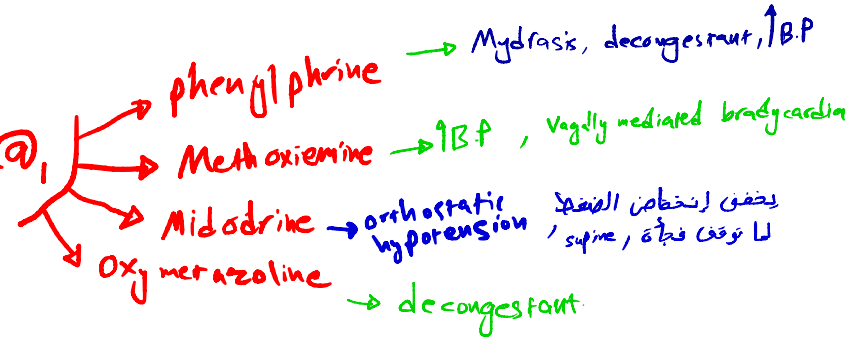 α1
phenylphrine → Mydrasis, decongestant, ↑B.P
Methoxiemine → ↑B.P, Vagally mediated bradycardia
Midodrine → orthostatic hypotension, يخفف إنخفاض الضغط
لما توقف فجأة, supine
Oxymetazoline → decongestant